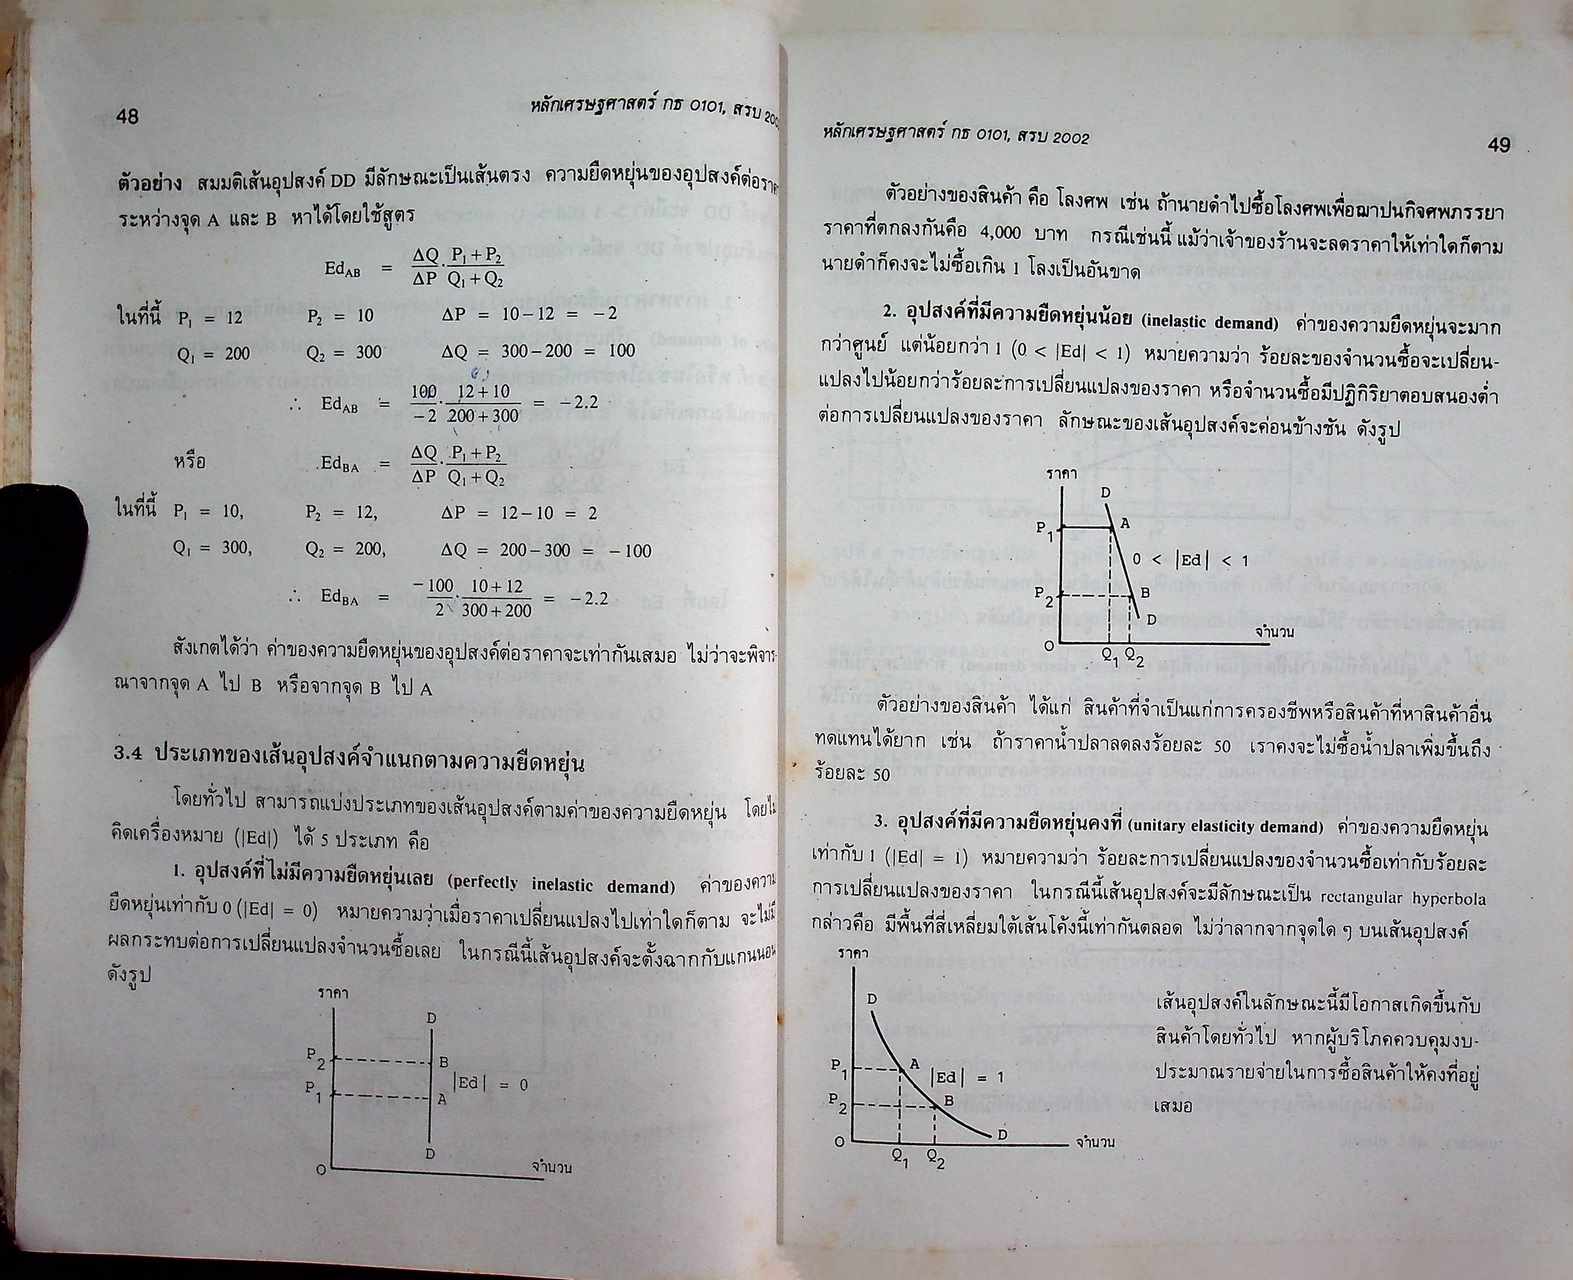 48
หลักเศรษฐศาสตร์ กธ 0101, สรบ 200
ตัวอย่าง สมมติเส้นอุปสงค์ DD มีลักษณะเป็นเส้นตรง ความยืดหยุ่นของอุปสงค์ต่อราคา
ระหว่างจุด A และ B หาได้โดยใช้สูตร
Ed_AB = ΔQ/ΔP · (P₁+P₂)/(Q₁+Q₂)
ในที่นี้ P₁ = 12 P₂ = 10 ΔP = 10−12 = −2
Q₁ = 200 Q₂ = 300 ΔQ = 300−200 = 100
∴ Ed_AB = 100/−2 · (12+10)/(200+300) = −2.2
หรือ Ed_BA = ΔQ/ΔP · (P₁+P₂)/(Q₁+Q₂)
ในที่นี้ P₁ = 10, P₂ = 12, ΔP = 12−10 = 2
Q₁ = 300, Q₂ = 200, ΔQ = 200−300 = −100
∴ Ed_BA = −100/2 · (10+12)/(300+200) = −2.2
สังเกตได้ว่า ค่าของความยืดหยุ่นของอุปสงค์ต่อราคาจะเท่ากันเสมอ ไม่ว่าจะพิจาร-
ณาจากจุด A ไป B หรือจากจุด B ไป A
3.4 ประเภทของเส้นอุปสงค์จำแนกตามความยืดหยุ่น
โดยทั่วไป สามารถแบ่งประเภทของเส้นอุปสงค์ตามค่าของความยืดหยุ่น โดยไม่
คิดเครื่องหมาย (|Ed|) ได้ 5 ประเภท คือ
1. อุปสงค์ที่ไม่มีความยืดหยุ่นเลย (perfectly inelastic demand) ค่าของความ
ยืดหยุ่นเท่ากับ 0 (|Ed| = 0) หมายความว่าเมื่อราคาเปลี่ยนแปลงไปเท่าใดก็ตาม จะไม่มี
ผลกระทบต่อการเปลี่ยนแปลงจำนวนซื้อเลย ในกรณีนี้เส้นอุปสงค์จะตั้งฉากกับแกนนอน
ดังรูป
ราคา
D
P₂
B
|Ed| = 0
P₁
A
D
O
จำนวน
หลักเศรษฐศาสตร์ กธ 0101, สรบ 2002
49
ตัวอย่างของสินค้า คือ โลงศพ เช่น ถ้านายดำไปซื้อโลงศพเพื่อฌาปนกิจศพภรรยา
ราคาที่ตกลงกันคือ 4,000 บาท กรณีเช่นนี้ แม้ว่าเจ้าของร้านจะลดราคาให้เท่าใดก็ตาม
นายดำก็คงจะไม่ซื้อเกิน 1 โลงเป็นอันขาด
2. อุปสงค์ที่มีความยืดหยุ่นน้อย (inelastic demand) ค่าของความยืดหยุ่นจะมาก
กว่าศูนย์ แต่น้อยกว่า 1 (0 < |Ed| < 1) หมายความว่า ร้อยละของจำนวนซื้อจะเปลี่ยน-
แปลงไปน้อยกว่าร้อยละการเปลี่ยนแปลงของราคา หรือจำนวนซื้อมีปฏิกิริยาตอบสนองต่ำ
ต่อการเปลี่ยนแปลงของราคา ลักษณะของเส้นอุปสงค์จะค่อนข้างชัน ดังรูป
ราคา
D
P₁
A
0 < |Ed| < 1
P₂
B
D
O
Q₁ Q₂
จำนวน
ตัวอย่างของสินค้า ได้แก่ สินค้าที่จำเป็นแก่การครองชีพหรือสินค้าที่หาสินค้าอื่น
ทดแทนได้ยาก เช่น ถ้าราคาน้ำปลาลดลงร้อยละ 50 เราคงจะไม่ซื้อน้ำปลาเพิ่มขึ้นถึง
ร้อยละ 50
3. อุปสงค์ที่มีความยืดหยุ่นคงที่ (unitary elasticity demand) ค่าของความยืดหยุ่น
เท่ากับ 1 (|Ed| = 1) หมายความว่า ร้อยละการเปลี่ยนแปลงของจำนวนซื้อเท่ากับร้อยละ
การเปลี่ยนแปลงของราคา ในกรณีนี้เส้นอุปสงค์จะมีลักษณะเป็น rectangular hyperbola
กล่าวคือ มีพื้นที่สี่เหลี่ยมใต้เส้นโค้งนี้เท่ากันตลอด ไม่ว่าลากจากจุดใด ๆ บนเส้นอุปสงค์
ราคา
D
P₁
A
|Ed| = 1
P₂
B
D
O
Q₁ Q₂
จำนวน
เส้นอุปสงค์ในลักษณะนี้มีโอกาสเกิดขึ้นกับ
สินค้าโดยทั่วไป หากผู้บริโภคควบคุมงบ-
ประมาณรายจ่ายในการซื้อสินค้าให้คงที่อยู่
เสมอ